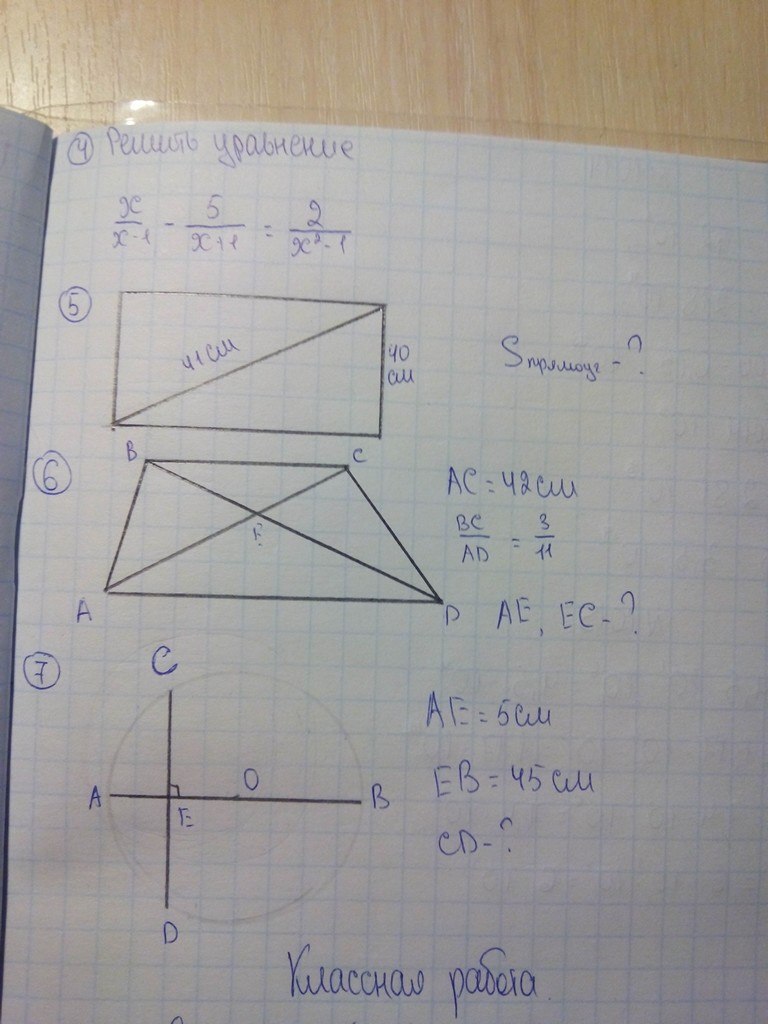 ④ Решить уравнение
x/(x-1) - 5/(x+1) = 2/(x²-1)
⑤
41 см
40 см
Sпрямоуг - ?
⑥
B
C
E
A
D
AC = 42 см
BC/AD = 3/11
AE, EC - ?
⑦
C
A
E
O
B
D
AE = 5 см
EB = 45 см
CD - ?
Классная работа